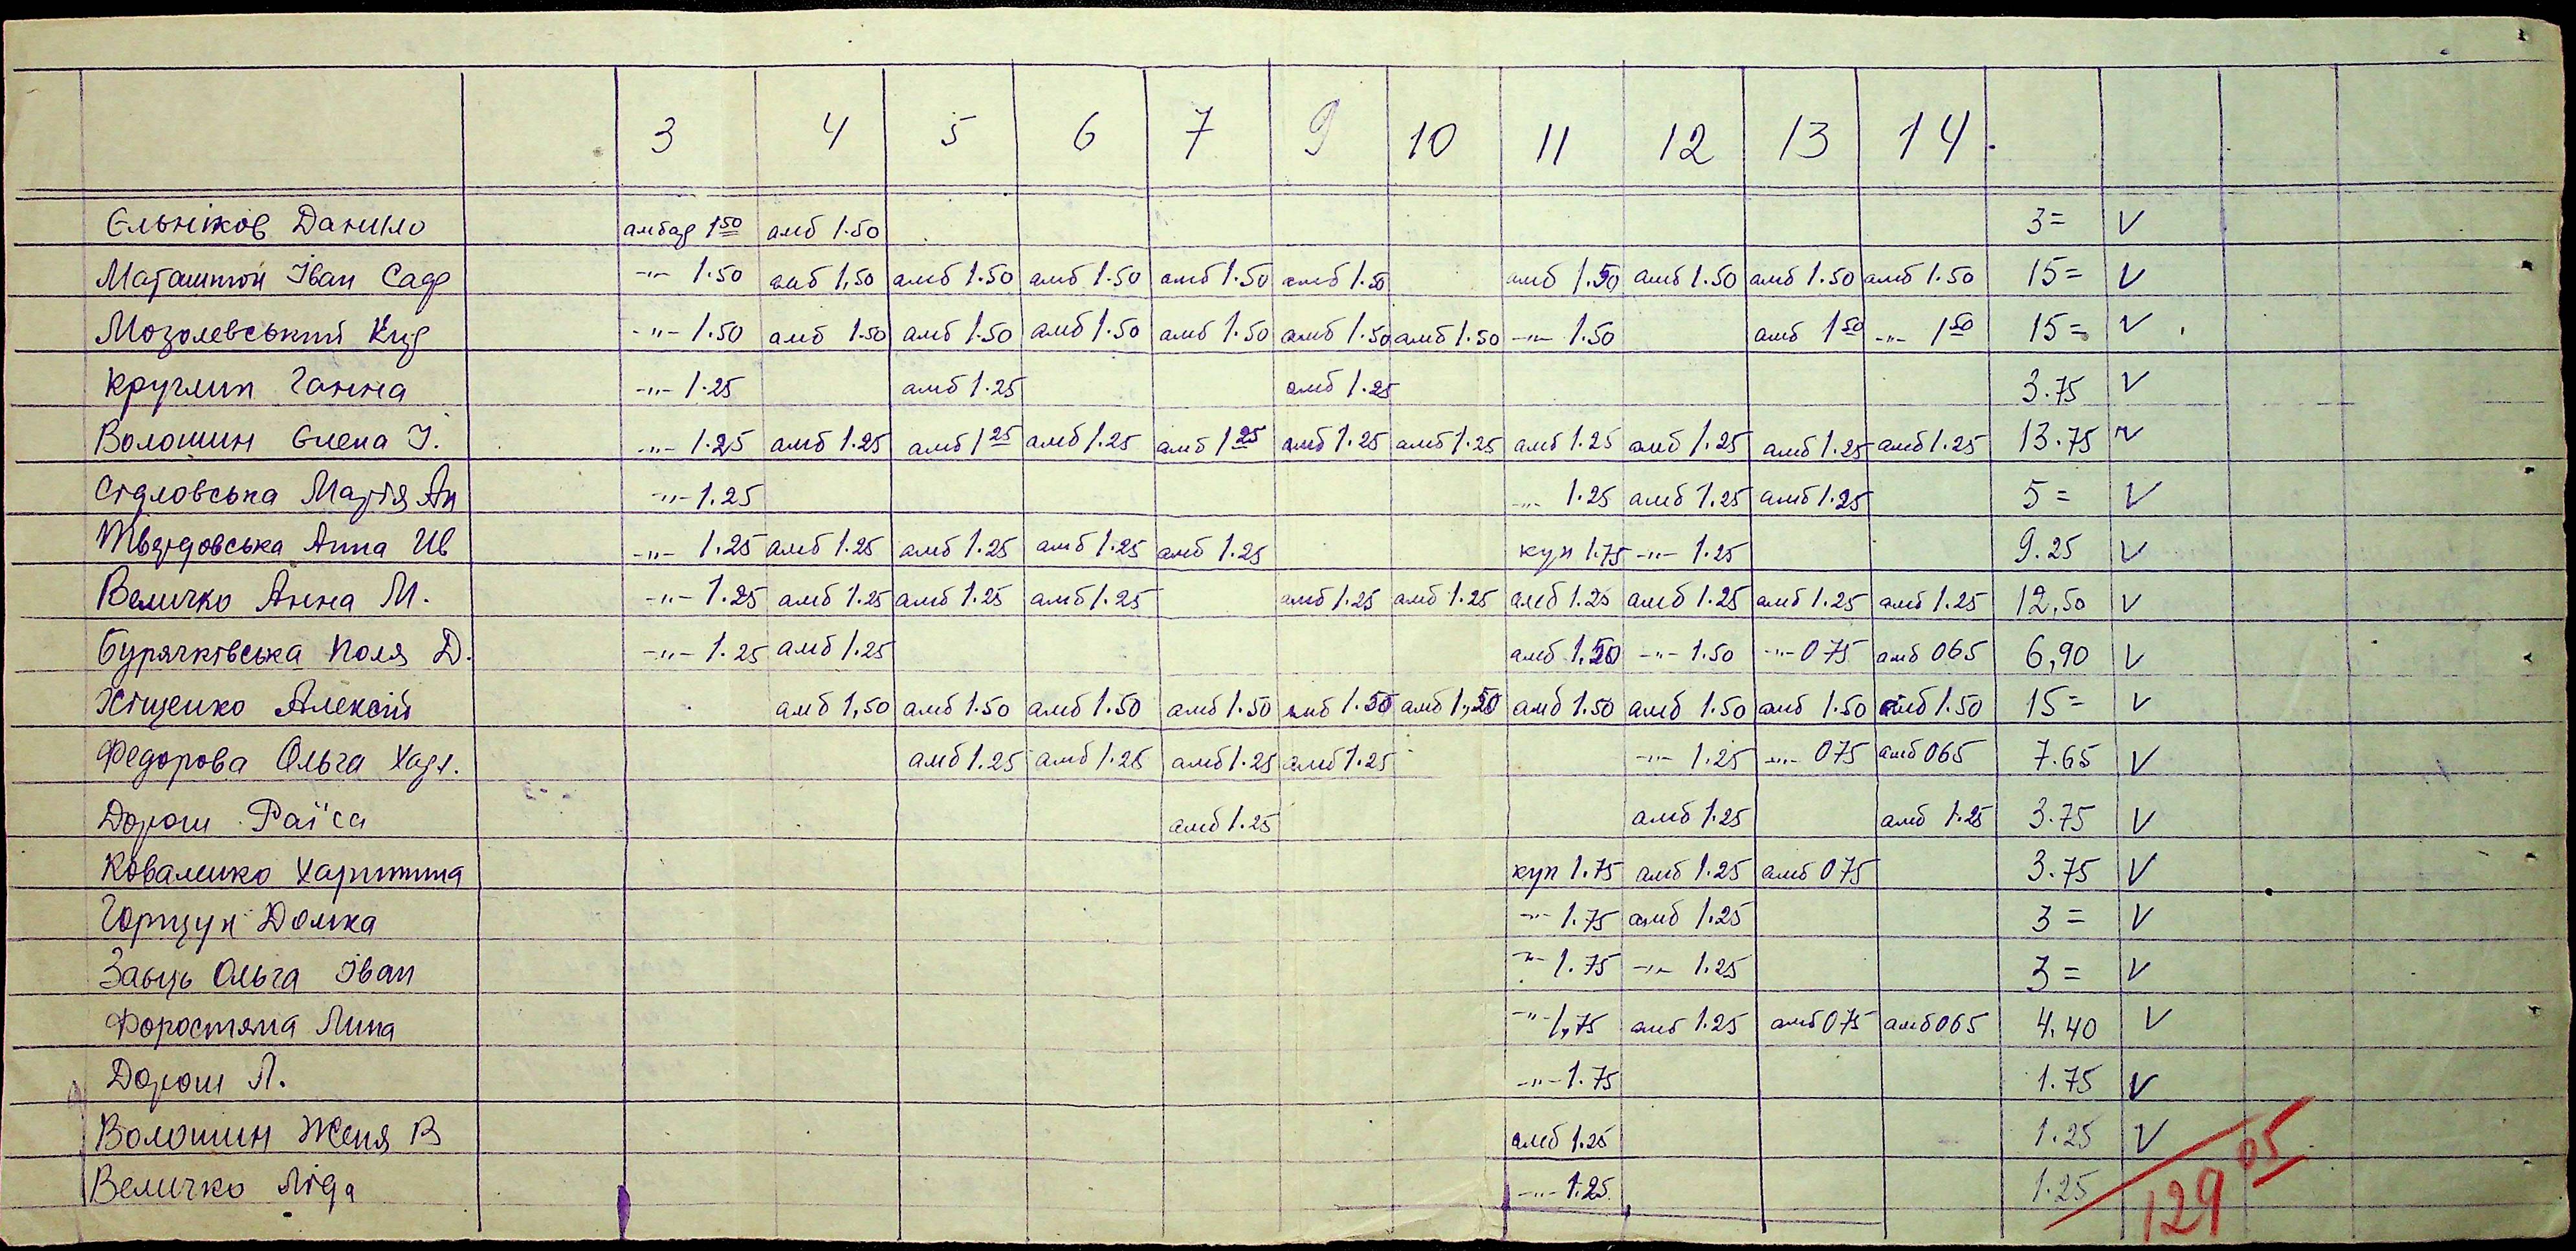 3 4 5 6 7 9 10 11 12 13 14.
Єльніков Данило амбар 1 50 амб 1.50 3= V
Маташнюй Іван Садр -"- 1.50 амб 1,50 амб 1.50 амб 1.50 амб 1.50 амб 1.50 амб 1.50 амб 1.50 амб 1.50 амб 1.50 15= V
Мозолевський Кир -"- 1.50 амб 1.50 амб 1.50 амб 1.50 амб 1.50 амб 1.50 амб 1.50 -"- 1.50 амб 1 50 -"- 1 50 15= V
Круглик Ганна -"- 1.25 амб 1.25 амб 1.25 3.75 V
Волошин Єлена І. -"- 1.25 амб 1.25 амб 1 25 амб 1.25 амб 1 25 амб 1.25 амб 1.25 амб 1.25 амб 1.25 амб 1.25 амб 1.25 13.75 V
Сідловська Марія Ан -"- 1.25 -"- 1.25 амб 1.25 амб 1.25 5= V
Твердовська Анна Ив -"- 1.25 амб 1.25 амб 1.25 амб 1.25 амб 1.25 куп 1.75 -"- 1.25 9.25 V
Величко Анна М. -"- 1.25 амб 1.25 амб 1.25 амб 1.25 амб 1.25 амб 1.25 амб 1.25 амб 1.25 амб 1.25 амб 1.25 12,50 V
Бурячківська Поля Д. -"- 1.25 амб 1.25 амб 1.50 -"- 1.50 -"- 075 амб 065 6,90 V
Хіщенко Алексій амб 1,50 амб 1.50 амб 1.50 амб 1.50 амб 1.50 амб 1,50 амб 1.50 амб 1.50 амб 1.50 амб 1.50 15= V
Федорова Ольга Хар. амб 1.25 амб 1.25 амб 1.25 амб 1.25 -"- 1.25 -"- 075 амб 065 7.65 V
Дорош Раїса амб 1.25 амб 1.25 амб 1.25 3.75 V
Коваленко Харитина куп 1.75 амб 1.25 амб 075 3.75 V
Горщук Домка -"- 1.75 амб 1.25 3= V
Заєць Ольга Іван -"- 1.75 -"- 1.25 3= V
Форостяна Лина -"- 1,75 амб 1.25 амб 075 амб 065 4.40 V
Дорош Л. -"- 1.75 1.75 V
Волошин Женя В амб 1.25 1.25 V
Величко Ліда -"- 1.25 1.25
129 05